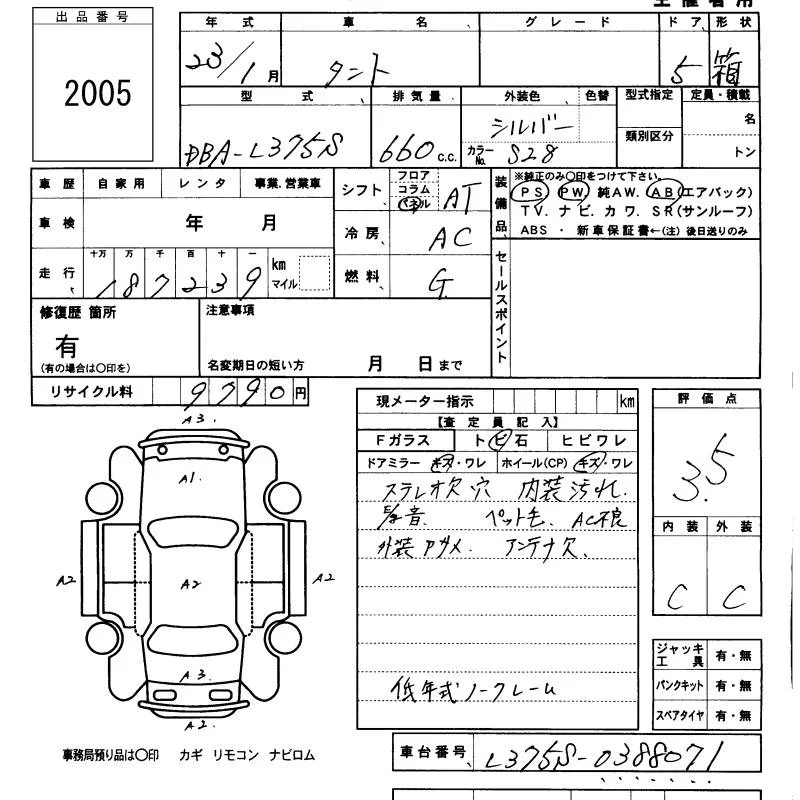 主催者用
出品番号
2005
年式 車名 グレード ドア 形状
23/1月 タント 5 箱
型式 排気量 外装色 色替 型式指定 定員・積載
DBA-L375S 660c.c. シルバー カラーNo. S28 類別区分 名 トン
車歴 自家用 レンタ 事業.営業車
車検 年 月
走行 十万 万 千 百 十 一 km マイル
187239
シフト フロア コラム パネル AT
冷房 AC
燃料 G
装備品 ※純正のみ〇印をつけて下さい。
PS PW 純AW. AB(エアバック)
TV. ナビ. カワ. SR(サンルーフ)
ABS ・ 新車保証書←(注) 後日送りのみ
セールスポイント
修復歴 箇所 注意事項
有
(有の場合は〇印を) 名変期日の短い方 月 日まで
リサイクル料 9790円
現メーター指示 km
【査定員記入】
Fガラス トビ石 ヒビワレ
ドアミラー キズ・ワレ ホイール(CP) キズ・ワレ
ステレオ欠 穴 内装汚れ.
音. ペット毛. AC不良
外装 アンテナ欠.
低年式ノークレーム
評価点
3.5
内装 外装
C C
ジャッキ工具 有・無
パンクキット 有・無
スペアタイヤ 有・無
A3.
A1.
A2
A2
A2
A3.
A2.
事務局預り品は〇印 カギ リモコン ナビロム
車台番号 L375S-0388071